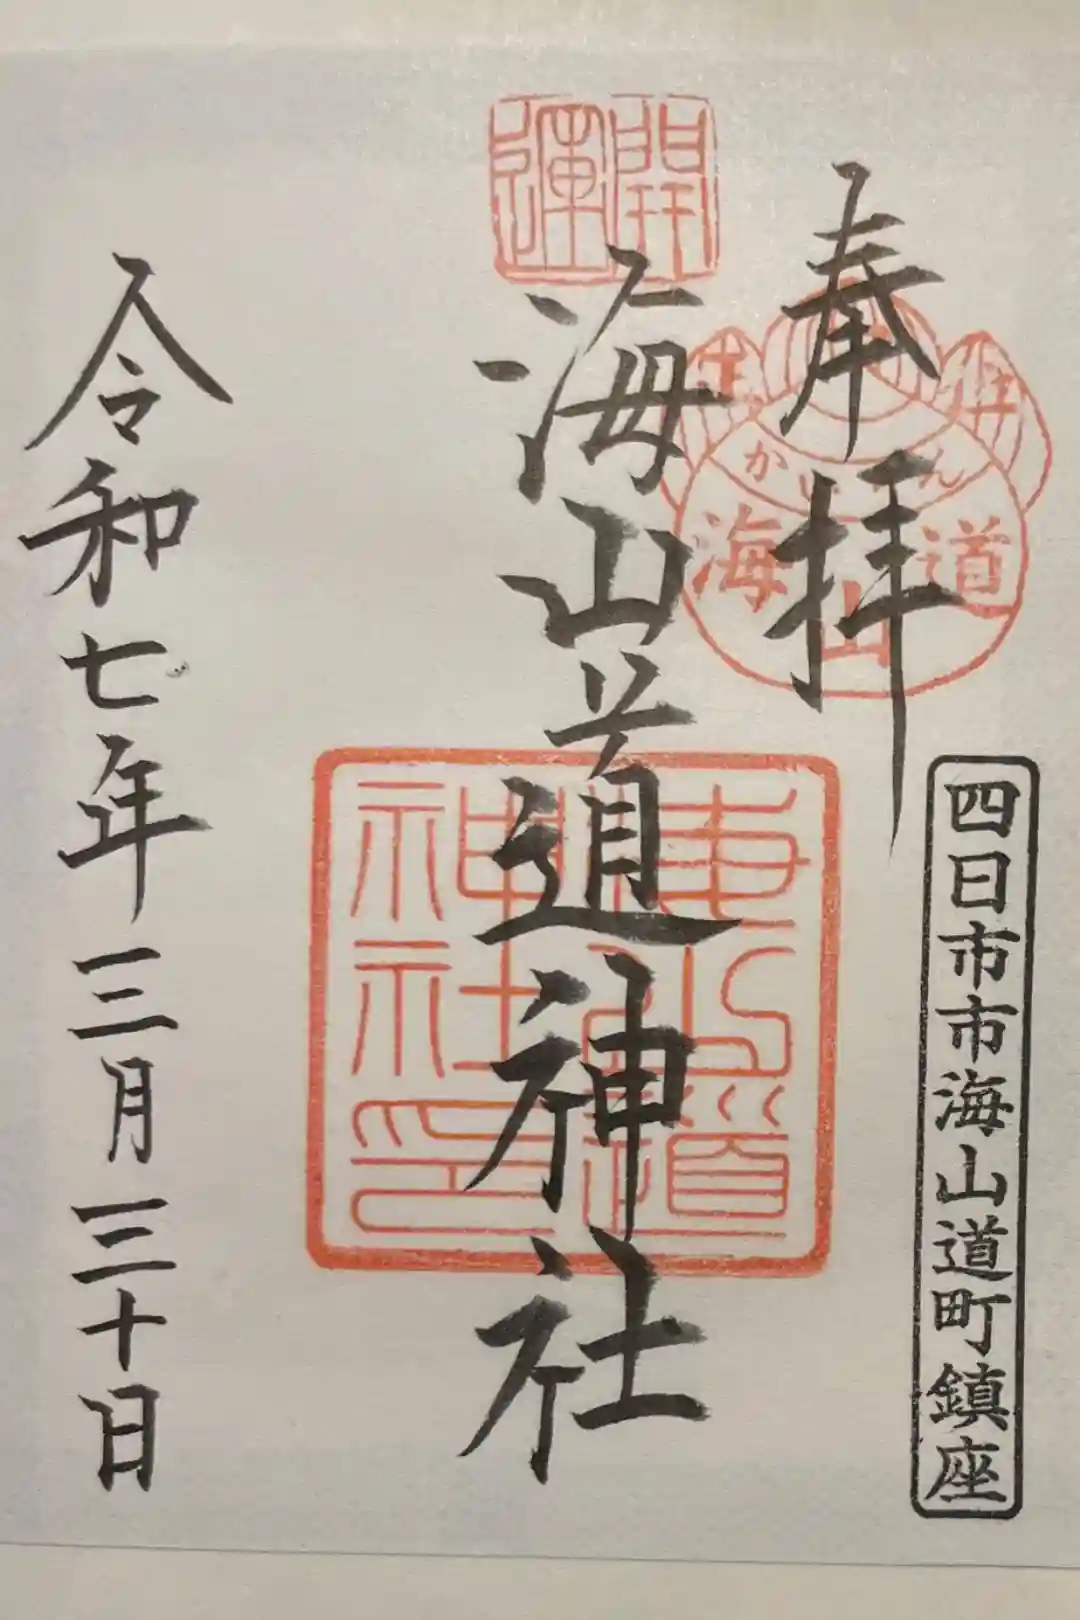 奉拝
四日市市海山道町鎮座
開運
海山道
海山道神社
海山道神社印
令和七年三月三十日